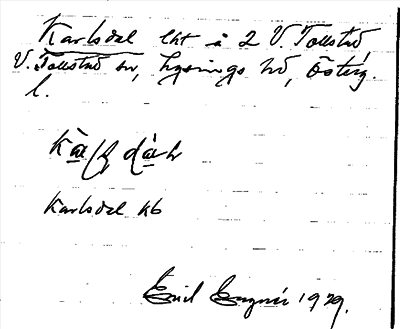 Karlsdal lht å 2 V. Tollstad,
V. Tollstad sn, Lysings hd, Österg.
l.
Karlsdal kb
Emil 1929.